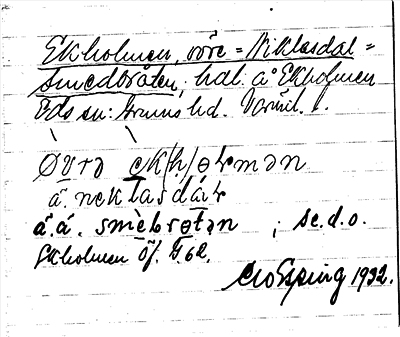 Ekholmen, övre = Niklasdal =
Smedbråten, hdl. å Ekholmen
Eds sn: Grums hd. Värml. l.
Øvrə ek/h/oɫmən
å. neklasdáɫ
å. á. smèbrɵtən ; se.d.o.
Ekholmen Öf. J.62.
1932.